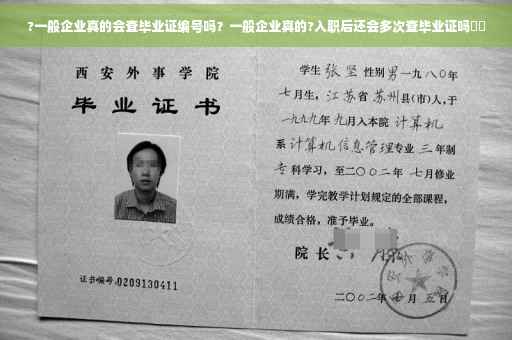 ?一般企业真的会查毕业证编号吗?一般企业真的?入职后还会多次查毕业证吗
西安外事学院
毕业证书
证书编号:0209130411
学生 张坚 性别 男 一九八〇年
七月生,江苏省苏州县(市)人,于
一九九九年九月入本院 计算机
系 计算机信息管理专业 三 年制
专科学习,至二〇〇二年 七月修业
期满,学完教学计划规定的全部课程,
成绩合格,准予毕业。
院长
二〇〇二年 七月五日